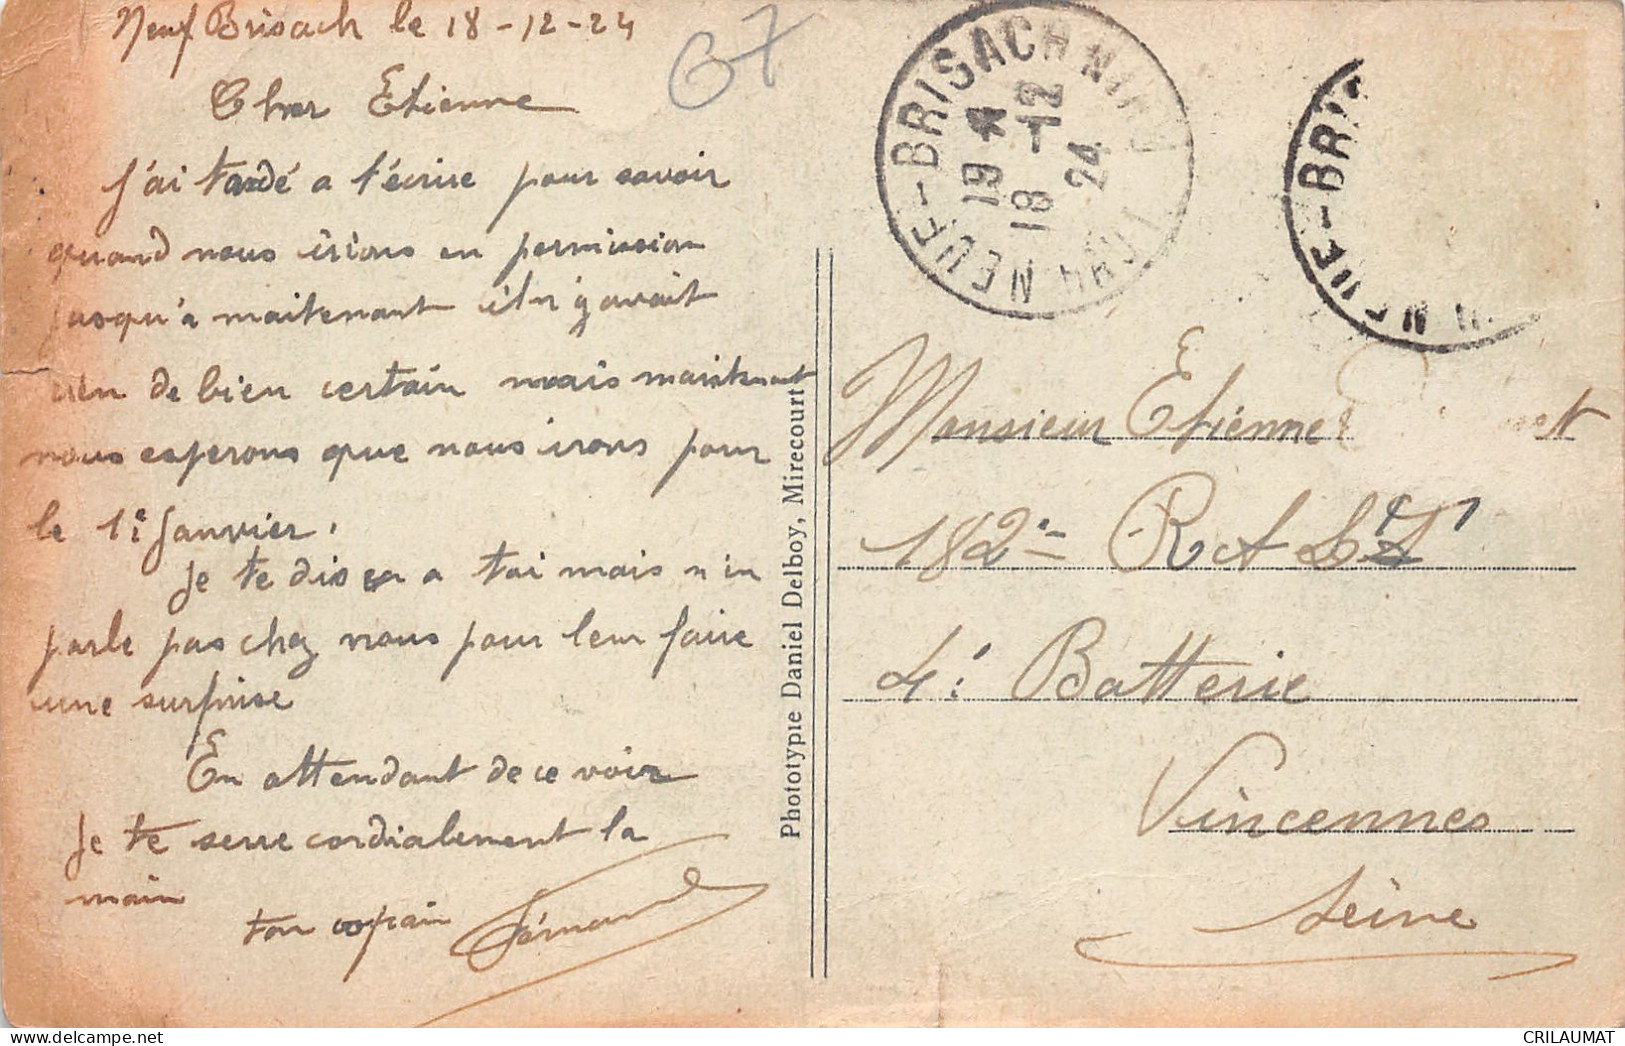 Neuf Brisach le 18-12-24
67
Cher Etienne
J'ai tardé a t'écrire pour savoir
quand nous irions en permission
jusqu'à maitenant il n'y avait
rien de bien certain mais maintenant
nous esperons que nous irons pour
le 1er Janvier.
Je te dis ça a toi mais n'en
parle pas chez nous pour leur faire
une surprise
En attendant de ce voir
Je te serre cordialement la
main
ton copain Fernand
Phototypie Daniel Delboy, Mirecourt
NEUF-BRISACH
19 18-12 24
NEUF-BRIS
Monsieur Etienne
182e R A L T
4e Batterie
Vincennes
Seine
CRILAUMAT